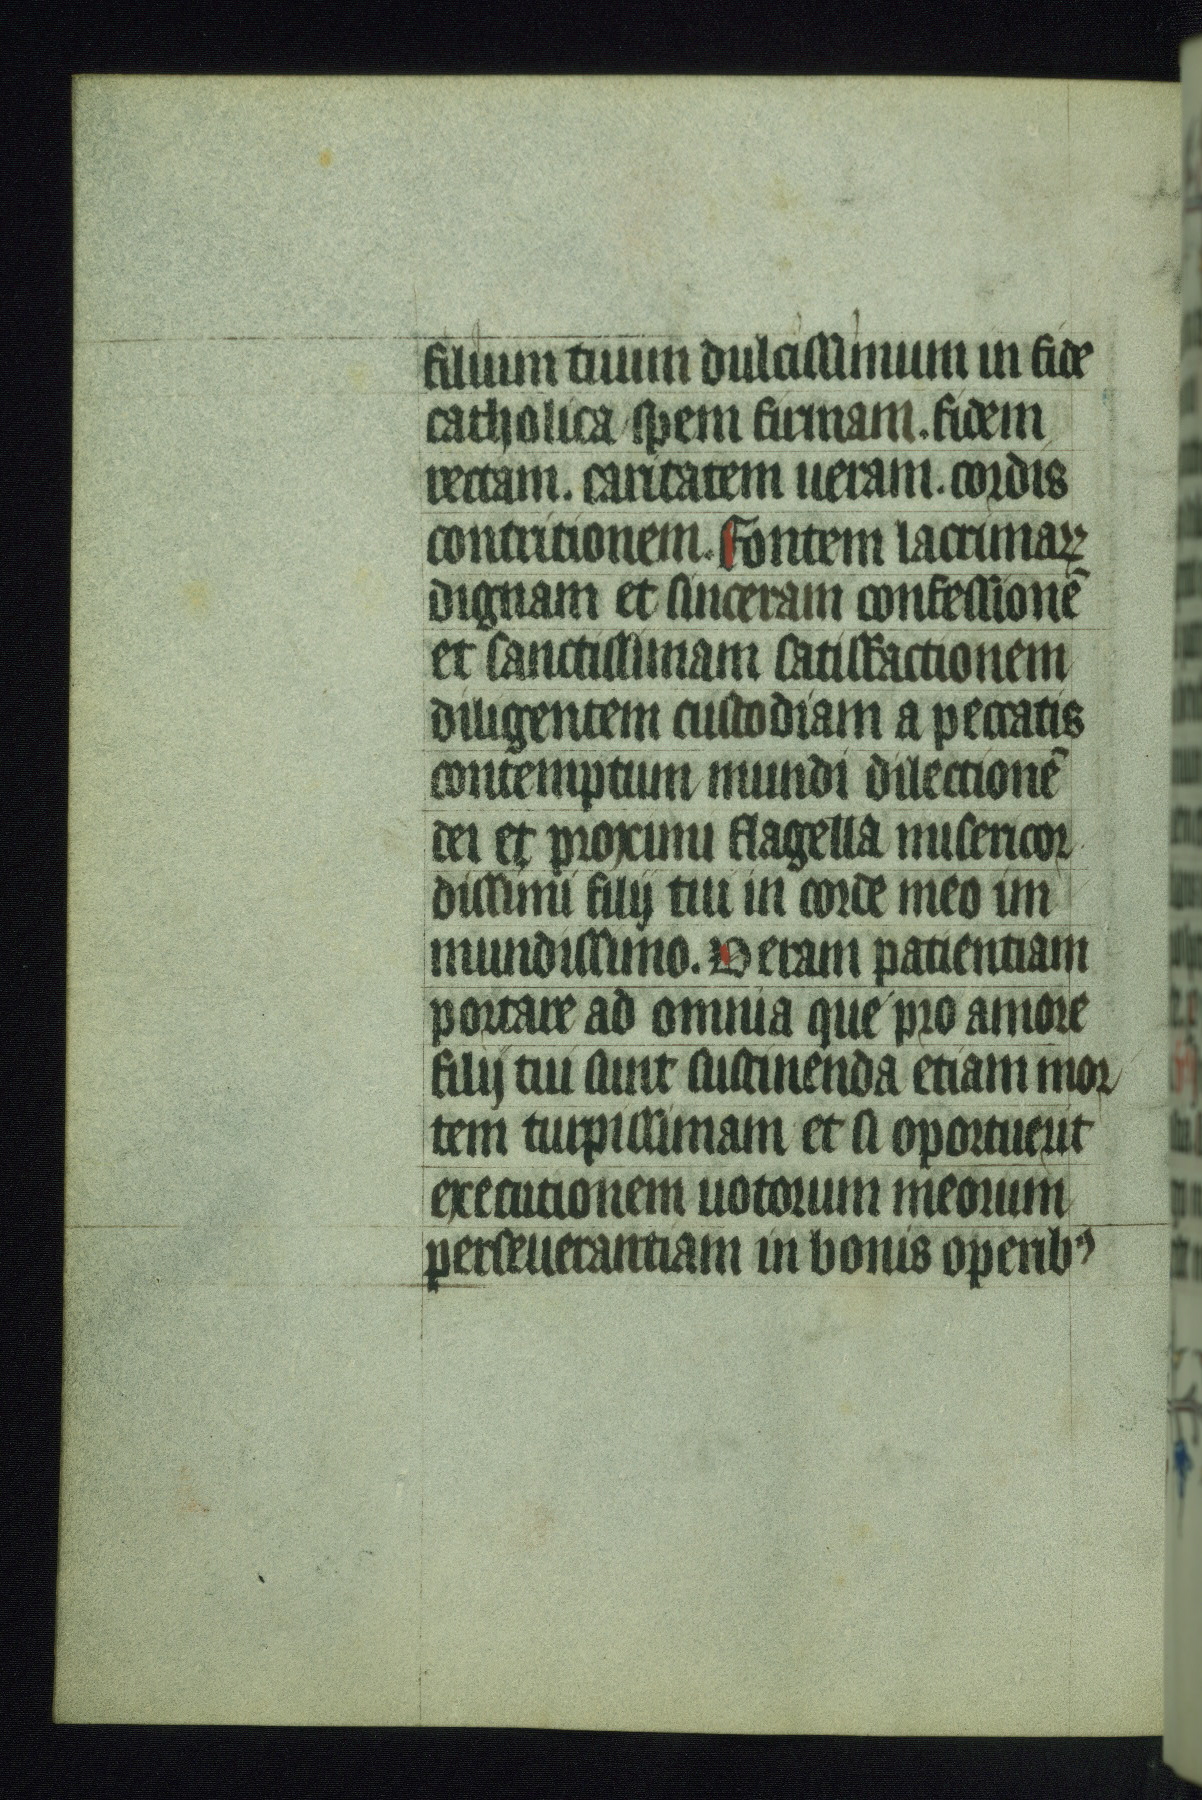 filium tuum dulcissimum in fide
catholica spem firmam. fidem
rectam. caritatem ueram. cordis
contritionem. Fontem lacrimaꝝ
dignam et sinceram confessionē
et sanctissimam satisfactionem
diligentem custodiam a peccatis
contemptum mundi dilectionē
dei et proximi flagella misericor
dissimi filij tui in corde meo im
mundissimo. Veram patientiam
portare ad omnia que pro amore
filij tui sunt sustinenda etiam mor
tem turpissimam et si oportuerit
executionem uotorum meorum
perseuerantiam in bonis operibꝰ